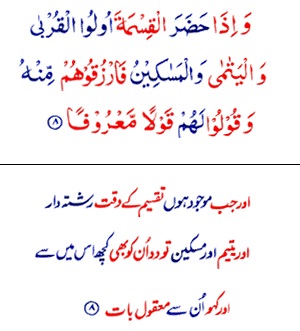 وَ اِذَا حَضَرَ الْقِسْمَةَ اُولُوا الْقُرْبٰى
وَ الْيَتٰمٰى وَ الْمَسٰكِيْنُ فَارْزُقُوْهُمْ مِّنْهُ
وَ قُوْلُوْا لَهُمْ قَوْلًا مَّعْرُوْفًا ﴿۸﴾
اور جب موجود ہوں تقسیم کے وقت رشتہ دار
اور یتیم اور مسکین تو دو اُن کو بھی کچھ اس میں سے
اور کہو اُن سے معقول بات ﴿۸﴾